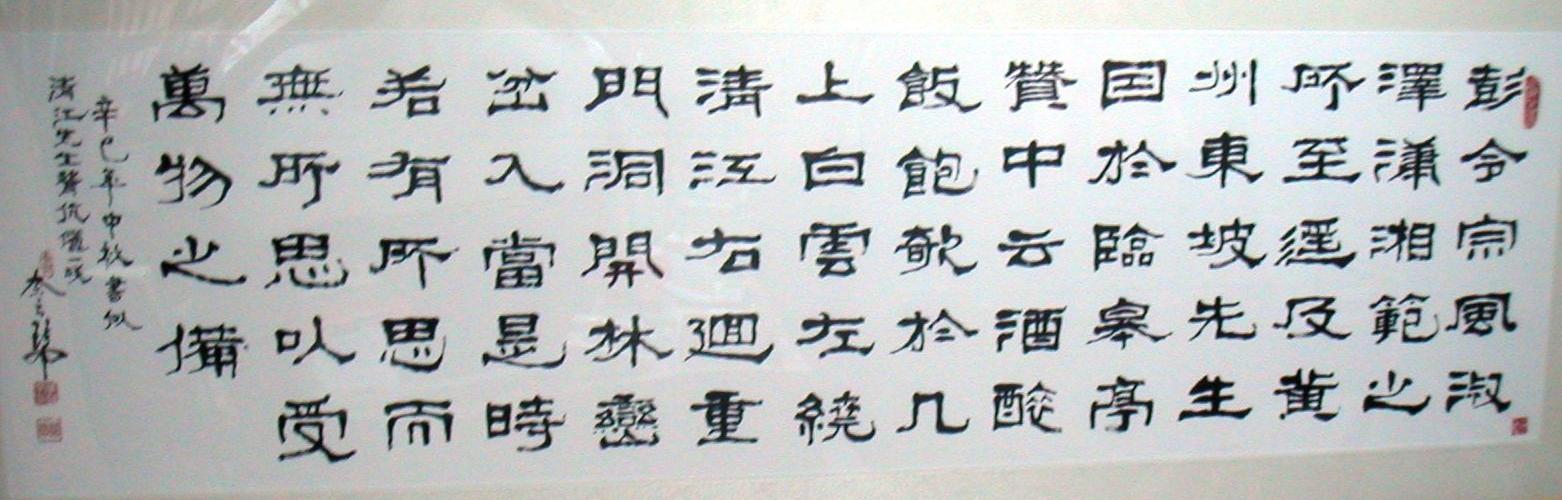 彭令宗風淑
澤瀟湘範之
所至遥及黄
州東坡先生
因於臨皋亭
贊中云酒醉
飯飽欹於几
上白雲左繞
清江右迴重
門洞開林巒
岔入當是時
若有所思而
無所思以受
萬物之備
辛巳年中秋書似
清江先生賢伉儷一咲